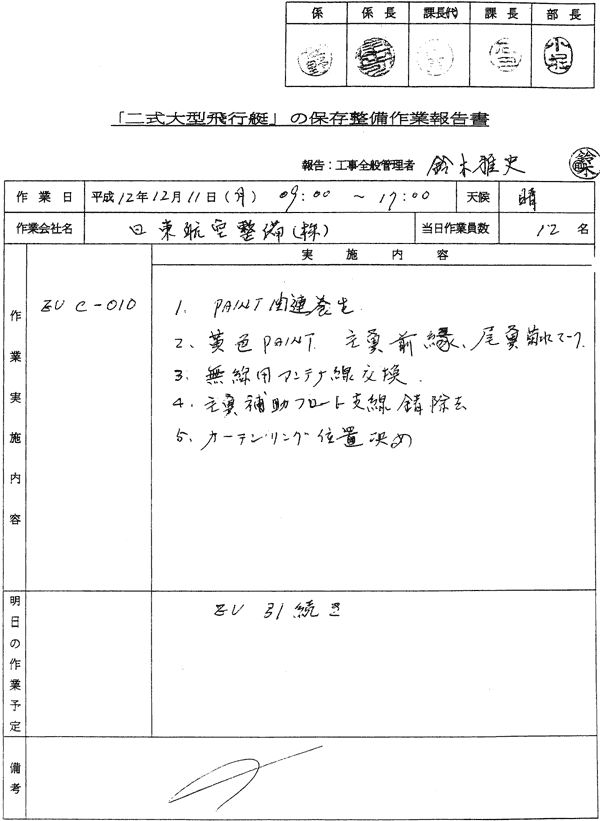 係 係長 課長(代) 課長 部長
「二式大型飛行艇」の保存整備作業報告書
報告：工事全般管理者 鈴木雅史
作業日 平成12年12月11日(月) 09:00 ～ 17:00 天候 晴
作業会社名 日東航空整備(株) 当日作業員数 12名
作業実施内容
実施内容
EU C-010
1. PAINT関連養生
2. 黄色PAINT 主翼前縁、尾翼
3. 無線用アンテナ線交換.
4. 主翼補助フロート支線錆除去
5. カーテンリング位置決め
明日の作業予定
EU 引続き
備考